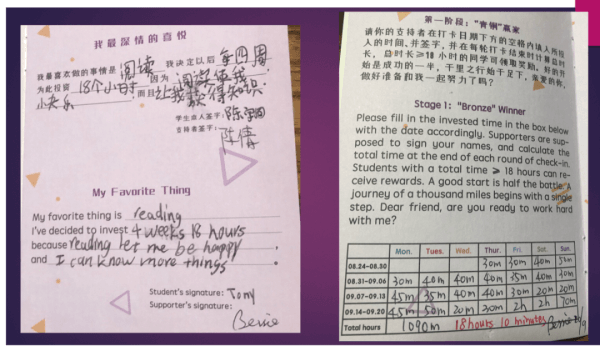 我最深情的喜悦
我最喜欢做的事情是 阅读 我决定以后 每四周
为此投资 18个小时, 因为 阅读使我
快乐, 而且 让我获得知识
学生本人签字: 陈
支持者签字: 陈倩
My Favorite Thing
My favorite thing is reading
I've decided to invest 4 weeks 18 hours
because reading let me be happy,
and I can know more things.
Student's signature: Tony
Supporter's signature:
第一阶段:“青铜”赢家
请你的支持者在打卡日期下方的空格内填入所投
入的时间,并签字,并在每轮打卡结束时计算总时
长,总时长≥18小时的同学可领取奖励。好的开
始是成功的一半,千里之行始于足下,亲爱的你,
做好准备和我一起努力了吗?
Stage 1: "Bronze" Winner
Please fill in the invested time in the box below
with the date accordingly. Supporters are sup-
posed to sign your names, and calculate the
total time at the end of each round of check-in.
Students with a total time ≥ 18 hours can re-
ceive rewards. A good start is half the battle. A
journey of a thousand miles begins with a single
step. Dear friend, are you ready to work hard
with me?
Mon. Tues. Wed. Thur. Fri. Sat. Sun.
08.24-08.30 30m 30m 40m
08.31-09.06 30m 40m 40m 40m 35m 40m 30m
09.07-09.13 45m 35m 40m 40m 30m 20m 20m
09.14-09.20 45m 50m 20m 30m 2h 2h 70m
Total hours 1090m 18hours 10 minutes